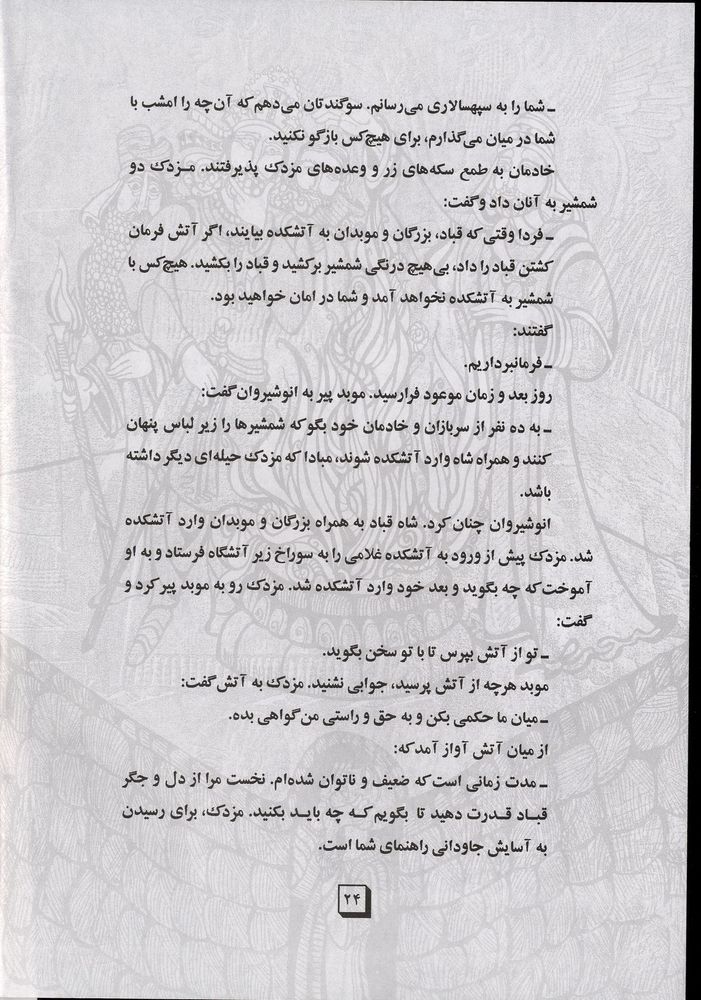 ـ شما را به سپهسالاری می‌رسانم. سوگندتان می‌دهم که آن‌چه را امشب با
شما در میان می‌گذارم، برای هیچ‌کس بازگو نکنید.
خادمان به طمع سکه‌های زر و وعده‌های مزدک پذیرفتند. مـزدک دو
شمشیر به آنان داد و گفت:
ـ فردا وقتی که قباد، بزرگان و موبدان به آتشکده بیایند، اگر آتش فرمان
کشتن قباد را داد، بی‌هیچ درنگی شمشیر برکشید و قباد را بکشید. هیچ‌کس با
شمشیر به آتشکده نخواهد آمد و شما در امان خواهید بود.
گفتند:
ـ فرمانبرداریم.
روز بعد و زمان موعود فرارسید. موبد پیر به انوشیروان گفت:
ـ به ده نفر از سربازان و خادمان خود بگو که شمشیرها را زیر لباس پنهان
کنند و همراه شاه وارد آتشکده شوند، مبادا که مزدک حیله‌ای دیگر داشته
باشد.
انوشیروان چنان کرد. شاه قباد به همراه بزرگان و موبدان وارد آتشکده
شد. مزدک پیش از ورود به آتشکده غلامی را به سوراخ زیر آتشگاه فرستاد و به او
آموخت که چه بگوید و بعد خود وارد آتشکده شد. مزدک رو به موبد پیر کرد و
گفت:
ـ تو از آتش بپرس تا با تو سخن بگوید.
موبد هرچه از آتش پرسید، جوابی نشنید. مزدک به آتش گفت:
ـ میان ما حکمی بکن و به حق و راستی من گواهی بده.
از میان آتش آواز آمد که:
ـ مدت زمانی است که ضعیف و ناتوان شده‌ام. نخست مرا از دل و جگر
قبـاد قـدرت دهید تا بگویم کـه چه بایـد بکنید. مزدک، برای رسیدن
به آسایش جاودانی راهنمای شما است.
۲۴